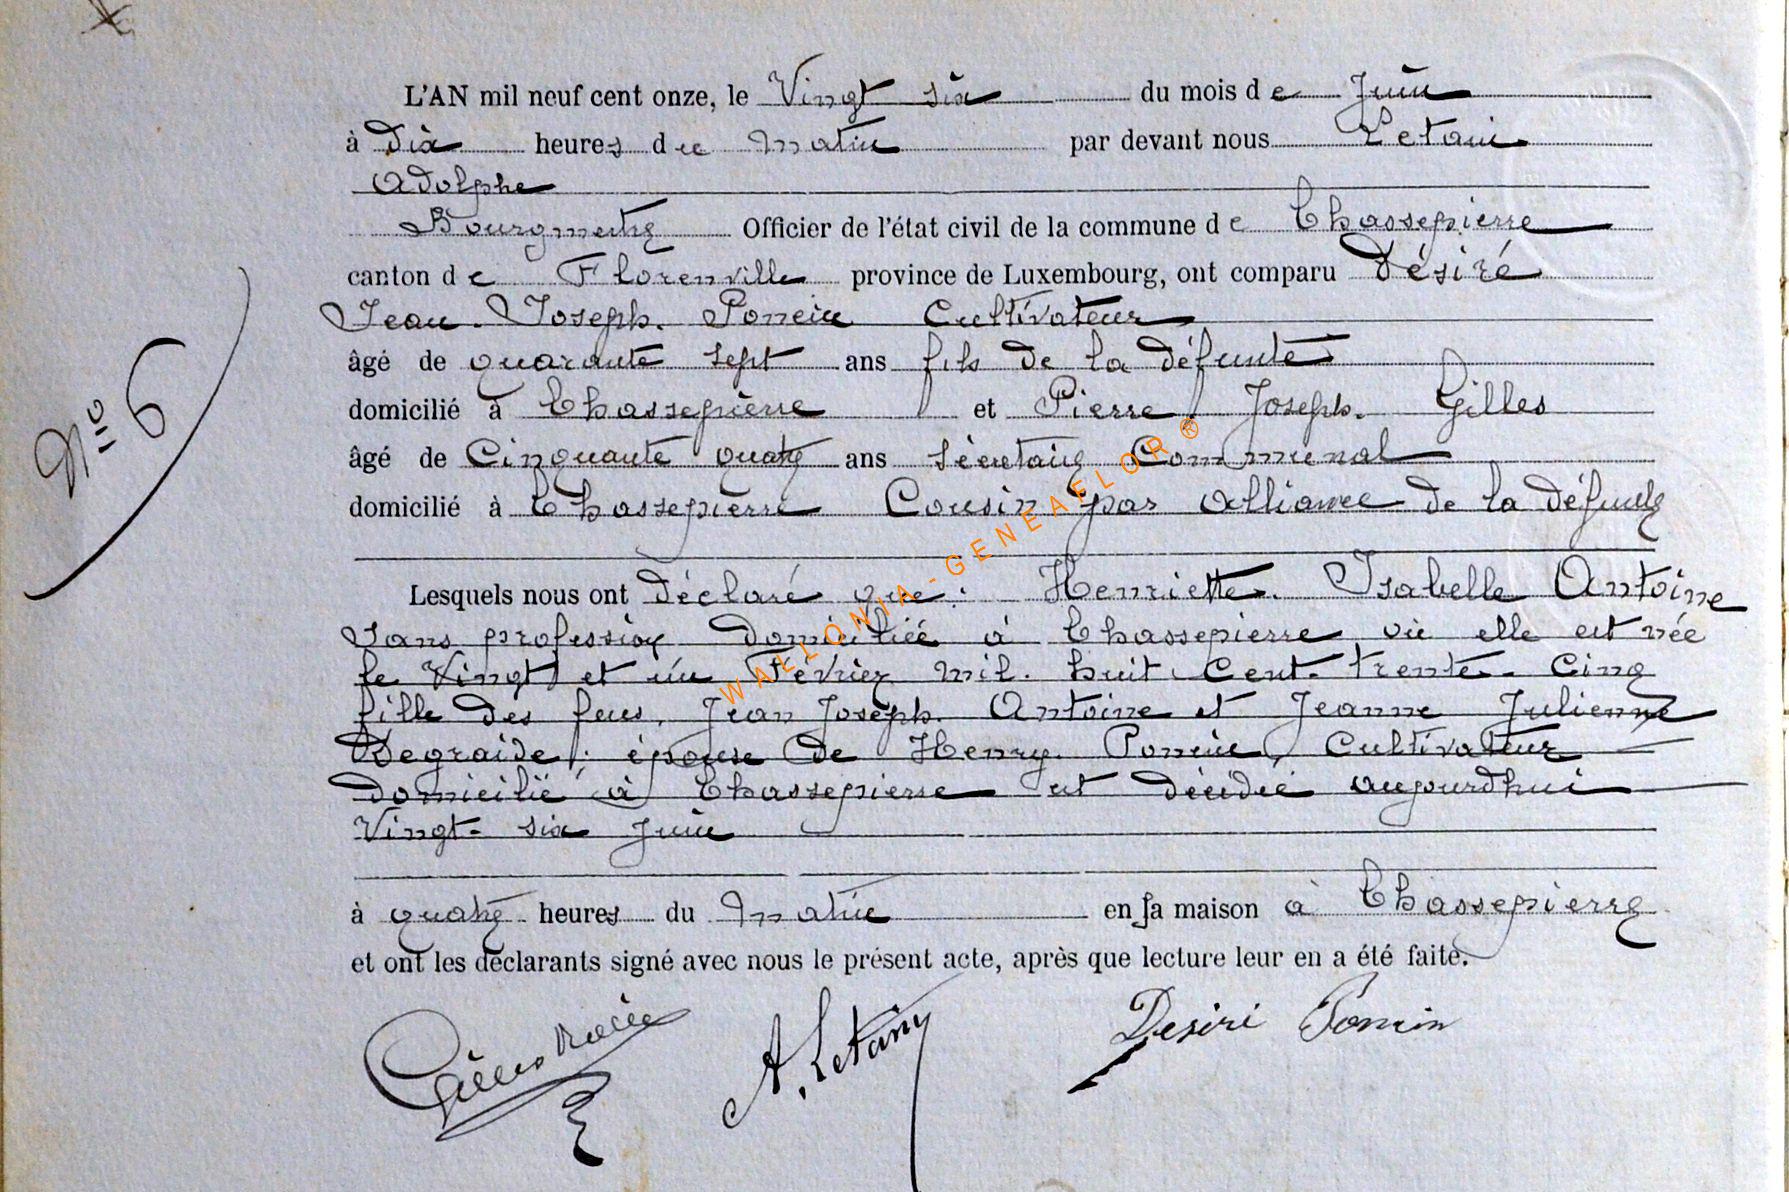 L'AN mil neuf cent onze, le Vingt six du mois de Juin
à Dix heures du Matin par devant nous Letain
Adolphe
Bourgmestre Officier de l'état civil de la commune de Chassepierre
canton de Florenville province de Luxembourg, ont comparu Désiré
Jean. Joseph. Poncin Cultivateur
âgé de quarante sept ans fils de la défunte
domicilié à Chassepierre et Pierre Joseph. Gilles
âgé de Cinquante quatre ans Sécretaire Communal
domicilié à Chassepierre Cousin par Alliance de la défunte
N° 6
Lesquels nous ont Déclaré que: Henriette. Isabelle Antoine
Sans profession domiciliée à Chassepierre où elle est née
le Vingt et un Février mil. huit Cent. trente. Cinq
fille des feus, Jean Joseph. Antoine et Jeanne Julienne
Degraide, épouse de Henry. Poncin, Cultivateur
domicilié à Chassepierre est décédée aujourdhui
Vingt-six Juin
à quatre heures du Matin en sa maison à Chassepierre
et ont les déclarants signé avec nous le présent acte, après que lecture leur en a été faite.
Gilles A. Letain Desiré Poncin
WALLONIA-GENEAFLOR®